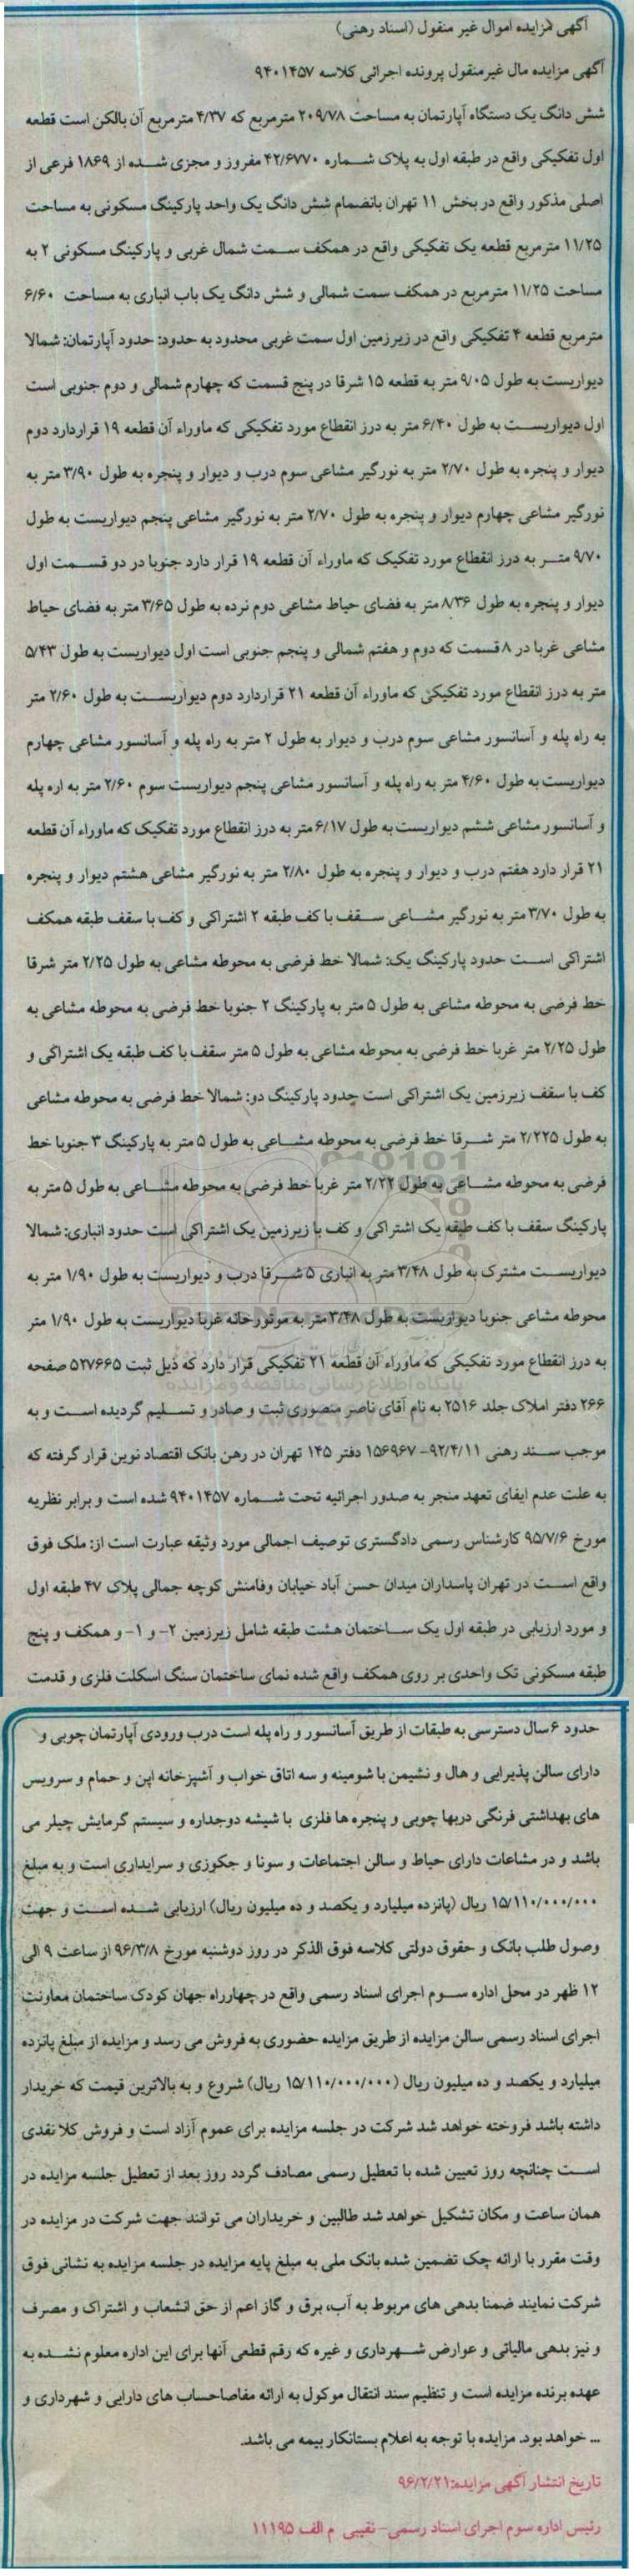 آگهی مزایده اموال غیر منقول (اسناد رهنی)
آگهی مزایده مال غیرمنقول پرونده اجرائی کلاسه ۹۴۰۱۴۵۷
شش دانگ یک دستگاه آپارتمان به مساحت ۲۰۹/۷۸ مترمربع که ۴/۳۷ مترمربع آن بالکن است قطعه
اول تفکیکی واقع در طبقه اول به پلاک شماره ۴۲/۶۷۷۰ مفروز و مجزی شده از ۱۸۶۹ فرعی از
اصلی مذکور واقع در بخش ۱۱ تهران بانضمام شش دانگ یک واحد پارکینگ مسکونی به مساحت
۱۱/۲۵ مترمربع قطعه یک تفکیکی واقع در همکف سمت شمال غربی و پارکینگ مسکونی ۲ به
مساحت ۱۱/۲۵ مترمربع در همکف سمت شمالی و شش دانگ یک باب انباری به مساحت ۶/۶۰
مترمربع قطعه ۴ تفکیکی واقع در زیرزمین اول سمت غربی محدود به حدود: حدود آپارتمان: شمالا
دیواریست به طول ۹/۰۵ متر به قطعه ۱۵ شرقا در پنج قسمت که چهارم شمالی و دوم جنوبی است
اول دیواریست به طول ۶/۴۰ متر به درز انقطاع مورد تفکیکی که ماوراء آن قطعه ۱۹ قراردارد دوم
دیوار و پنجره به طول ۲/۷۰ متر به نورگیر مشاعی سوم درب و دیوار و پنجره به طول ۳/۹۰ متر به
نورگیر مشاعی چهارم دیوار و پنجره به طول ۲/۷۰ متر به نورگیر مشاعی پنجم دیواریست به طول
۹/۷۰ متر به درز انقطاع مورد تفکیک که ماوراء آن قطعه ۱۹ قرار دارد جنوبا در دو قسمت اول
دیوار و پنجره به طول ۸/۳۶ متر به فضای حیاط مشاعی دوم نرده به طول ۳/۶۵ متر به فضای حیاط
مشاعی غربا در ۸ قسمت که دوم و هفتم شمالی و پنجم جنوبی است اول دیواریست به طول ۵/۴۳
متر به درز انقطاع مورد تفکیکی که ماوراء آن قطعه ۲۱ قراردارد دوم دیواریست به طول ۲/۶۰ متر
به راه پله و آسانسور مشاعی سوم درب و دیوار به طول ۲ متر به راه پله و آسانسور مشاعی چهارم
دیواریست به طول ۴/۶۰ متر به راه پله و آسانسور مشاعی پنجم دیواریست سوم ۲/۶۰ متر به اره پله
و آسانسور مشاعی ششم دیواریست به طول ۶/۱۷ متر به درز انقطاع مورد تفکیک که ماوراء آن قطعه
۲۱ قرار دارد هفتم درب و دیوار و پنجره به طول ۲/۸۰ متر به نورگیر مشاعی هشتم دیوار و پنجره
به طول ۳/۷۰ متر به نورگیر مشاعی سقف با کف طبقه ۲ اشتراکی و کف با سقف طبقه همکف
اشتراکی است حدود پارکینگ یک: شمالا خط فرضی به محوطه مشاعی به طول ۲/۲۵ متر شرقا
خط فرضی به محوطه مشاعی به طول ۵ متر به پارکینگ ۲ جنوبا خط فرضی به محوطه مشاعی به
طول ۲/۲۵ متر غربا خط فرضی به محوطه مشاعی به طول ۵ متر سقف با کف طبقه یک اشتراکی و
کف با سقف زیرزمین یک اشتراکی است حدود پارکینگ دو: شمالا خط فرضی به محوطه مشاعی
به طول ۲/۲۲۵ متر شرقا خط فرضی به محوطه مشاعی به طول ۵ متر به پارکینگ ۳ جنوبا خط
فرضی به محوطه مشاعی به طول ۲/۲۲ متر غربا خط فرضی به محوطه مشاعی به طول ۵ متر به
پارکینگ سقف با کف طبقه یک اشتراکی و کف با زیرزمین یک اشتراکی است حدود انباری: شمالا
دیواریست مشترک به طول ۳/۴۸ متر به انباری ۵ شرقا درب و دیواریست به طول ۱/۹۰ متر به
محوطه مشاعی جنوبا دیواریست به طول ۳/۴۸ متر به موتورخانه غربا دیواریست به طول ۱/۹۰ متر
به درز انقطاع مورد تفکیکی که ماوراء آن قطعه ۲۱ تفکیکی قرار دارد که ذیل ثبت ۵۲۷۶۶۵ صفحه
۲۶۶ دفتر املاک جلد ۲۵۱۶ به نام آقای ناصر منصوری ثبت و صادر و تسلیم گردیده است و به
موجب سند رهنی ۹۲/۴/۱۱- ۱۵۶۹۶۷ دفتر ۱۴۵ تهران در رهن بانک اقتصاد نوین قرار گرفته که
به علت عدم ایفای تعهد منجر به صدور اجرائیه تحت شماره ۹۴۰۱۴۵۷ شده است و برابر نظریه
مورخ ۹۵/۷/۶ کارشناس رسمی دادگستری توصیف اجمالی مورد وثیقه عبارت است از: ملک فوق
واقع است در تهران پاسداران میدان حسن آباد خیابان وفامنش کوچه جمالی پلاک ۴۷ طبقه اول
و مورد ارزیابی در طبقه اول یک ساختمان هشت طبقه شامل زیرزمین ۲- و ۱- و همکف و پنج
طبقه مسکونی تک واحدی بر روی همکف واقع شده نمای ساختمان سنگ اسکلت فلزی و قدمت
حدود ۶ سال دسترسی به طبقات از طریق آسانسور و راه پله است درب ورودی آپارتمان چوبی و
دارای سالن پذیرایی و هال و نشیمن با شومینه و سه اتاق خواب و آشپزخانه اپن و حمام و سرویس
های بهداشتی فرنگی دربها چوبی و پنجره ها فلزی با شیشه دوجداره و سیستم گرمایش چیلر می
باشد و در مشاعات دارای حیاط و سالن اجتماعات و سونا و جکوزی و سرایداری است و به مبلغ
۱۵/۱۱۰/۰۰۰/۰۰۰ ریال (پانزده میلیارد و یکصد و ده میلیون ریال) ارزیابی شده است و جهت
وصول طلب بانک و حقوق دولتی کلاسه فوق الذکر در روز دوشنبه مورخ ۹۶/۳/۸ از ساعت ۹ الی
۱۲ ظهر در محل اداره سوم اجرای اسناد رسمی واقع در چهارراه جهان کودک ساختمان معاونت
اجرای اسناد رسمی سالن مزایده از طریق مزایده حضوری به فروش می رسد و مزایده از مبلغ پانزده
میلیارد و یکصد و ده میلیون ریال (۱۵/۱۱۰/۰۰۰/۰۰۰ ریال) شروع و به بالاترین قیمت که خریدار
داشته باشد فروخته خواهد شد شرکت در جلسه مزایده برای عموم آزاد است و فروش کلا نقدی
است چنانچه روز تعیین شده با تعطیل رسمی مصادف گردد روز بعد از تعطیل جلسه مزایده در
همان ساعت و مکان تشکیل خواهد شد طالبین و خریداران می توانند جهت شرکت در مزایده در
وقت مقرر با ارائه چک تضمین شده بانک ملی به مبلغ پایه مزایده در جلسه مزایده به نشانی فوق
شرکت نمایند ضمنا بدهی های مربوط به آب، برق و گاز اعم از حق انشعاب و اشتراک و مصرف
و نیز بدهی مالیاتی و عوارض شهرداری و غیره که رقم قطعی آنها برای این اداره معلوم نشده به
عهده برنده مزایده است و تنظیم سند انتقال موکول به ارائه مفاصاحساب های دارایی و شهرداری و
... خواهد بود. مزایده با توجه به اعلام بستانکار بیمه می باشد.
تاریخ انتشار آگهی مزایده: ۹۶/۲/۲۱
رئیس اداره سوم اجرای اسناد رسمی- نقیبی م الف ۱۱۱۹۵